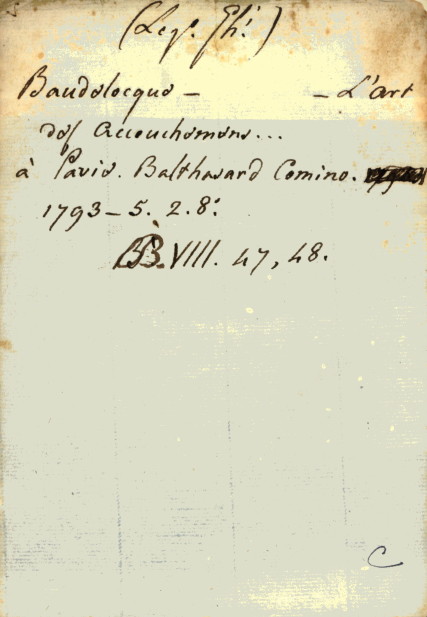 (Leg.º Gh.i)
Baudelocque – – L'art
des accouchemens...
à Pavie. Balthasard Comino.
1793–5. 2. 8.º
BB. VIII. 47, 48.
C